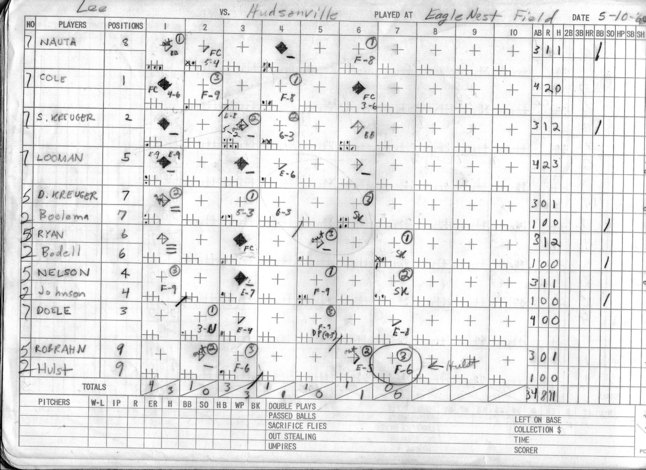 Lee VS. Hudsonville PLAYED AT Eagle Nest Field DATE 5-10-
NO PLAYERS POSITIONS 1 2 3 4 5 6 7 8 9 10 AB R H 2B 3B HR BB SO HP SB SH
7 NAUTA 8 FC 5-4 F-8 3 1 1
7 COLE 1 FC 4-6 F-9 F-8 FC 3-6 4 2 0
7 S. KREUGER 2 6-3 BB 3 1 2
7 LOOMAN 5 E-9 E-6 4 2 3
5 D. KREUGER 7 5-3 6-3 SK 3 0 1
2 Boolema 7 1 0 0
5 RYAN 6 FC SK 3 1 2
2 Bodell 6 1 0 0
5 NELSON 4 F-9 E-7 F-9 SK 3 1 1
2 Johnson 4 1 0 0
7 DOELE 3 3-U E-4 F-7 DP E-8 4 0 0
5 ROBRAHN 9 F-6 E-5 F-6 ← Hulst 3 0 1
2 Hulst 9 1 0 0
TOTALS 4 3 1 0 3 3 1 1 1 0 1 0 0 34 8 11
PITCHERS W-L IP R ER H BB SO HB WP BK DOUBLE PLAYS
PASSED BALLS
SACRIFICE FLIES LEFT ON BASE
OUT STEALING COLLECTION $
UMPIRES TIME
SCORER